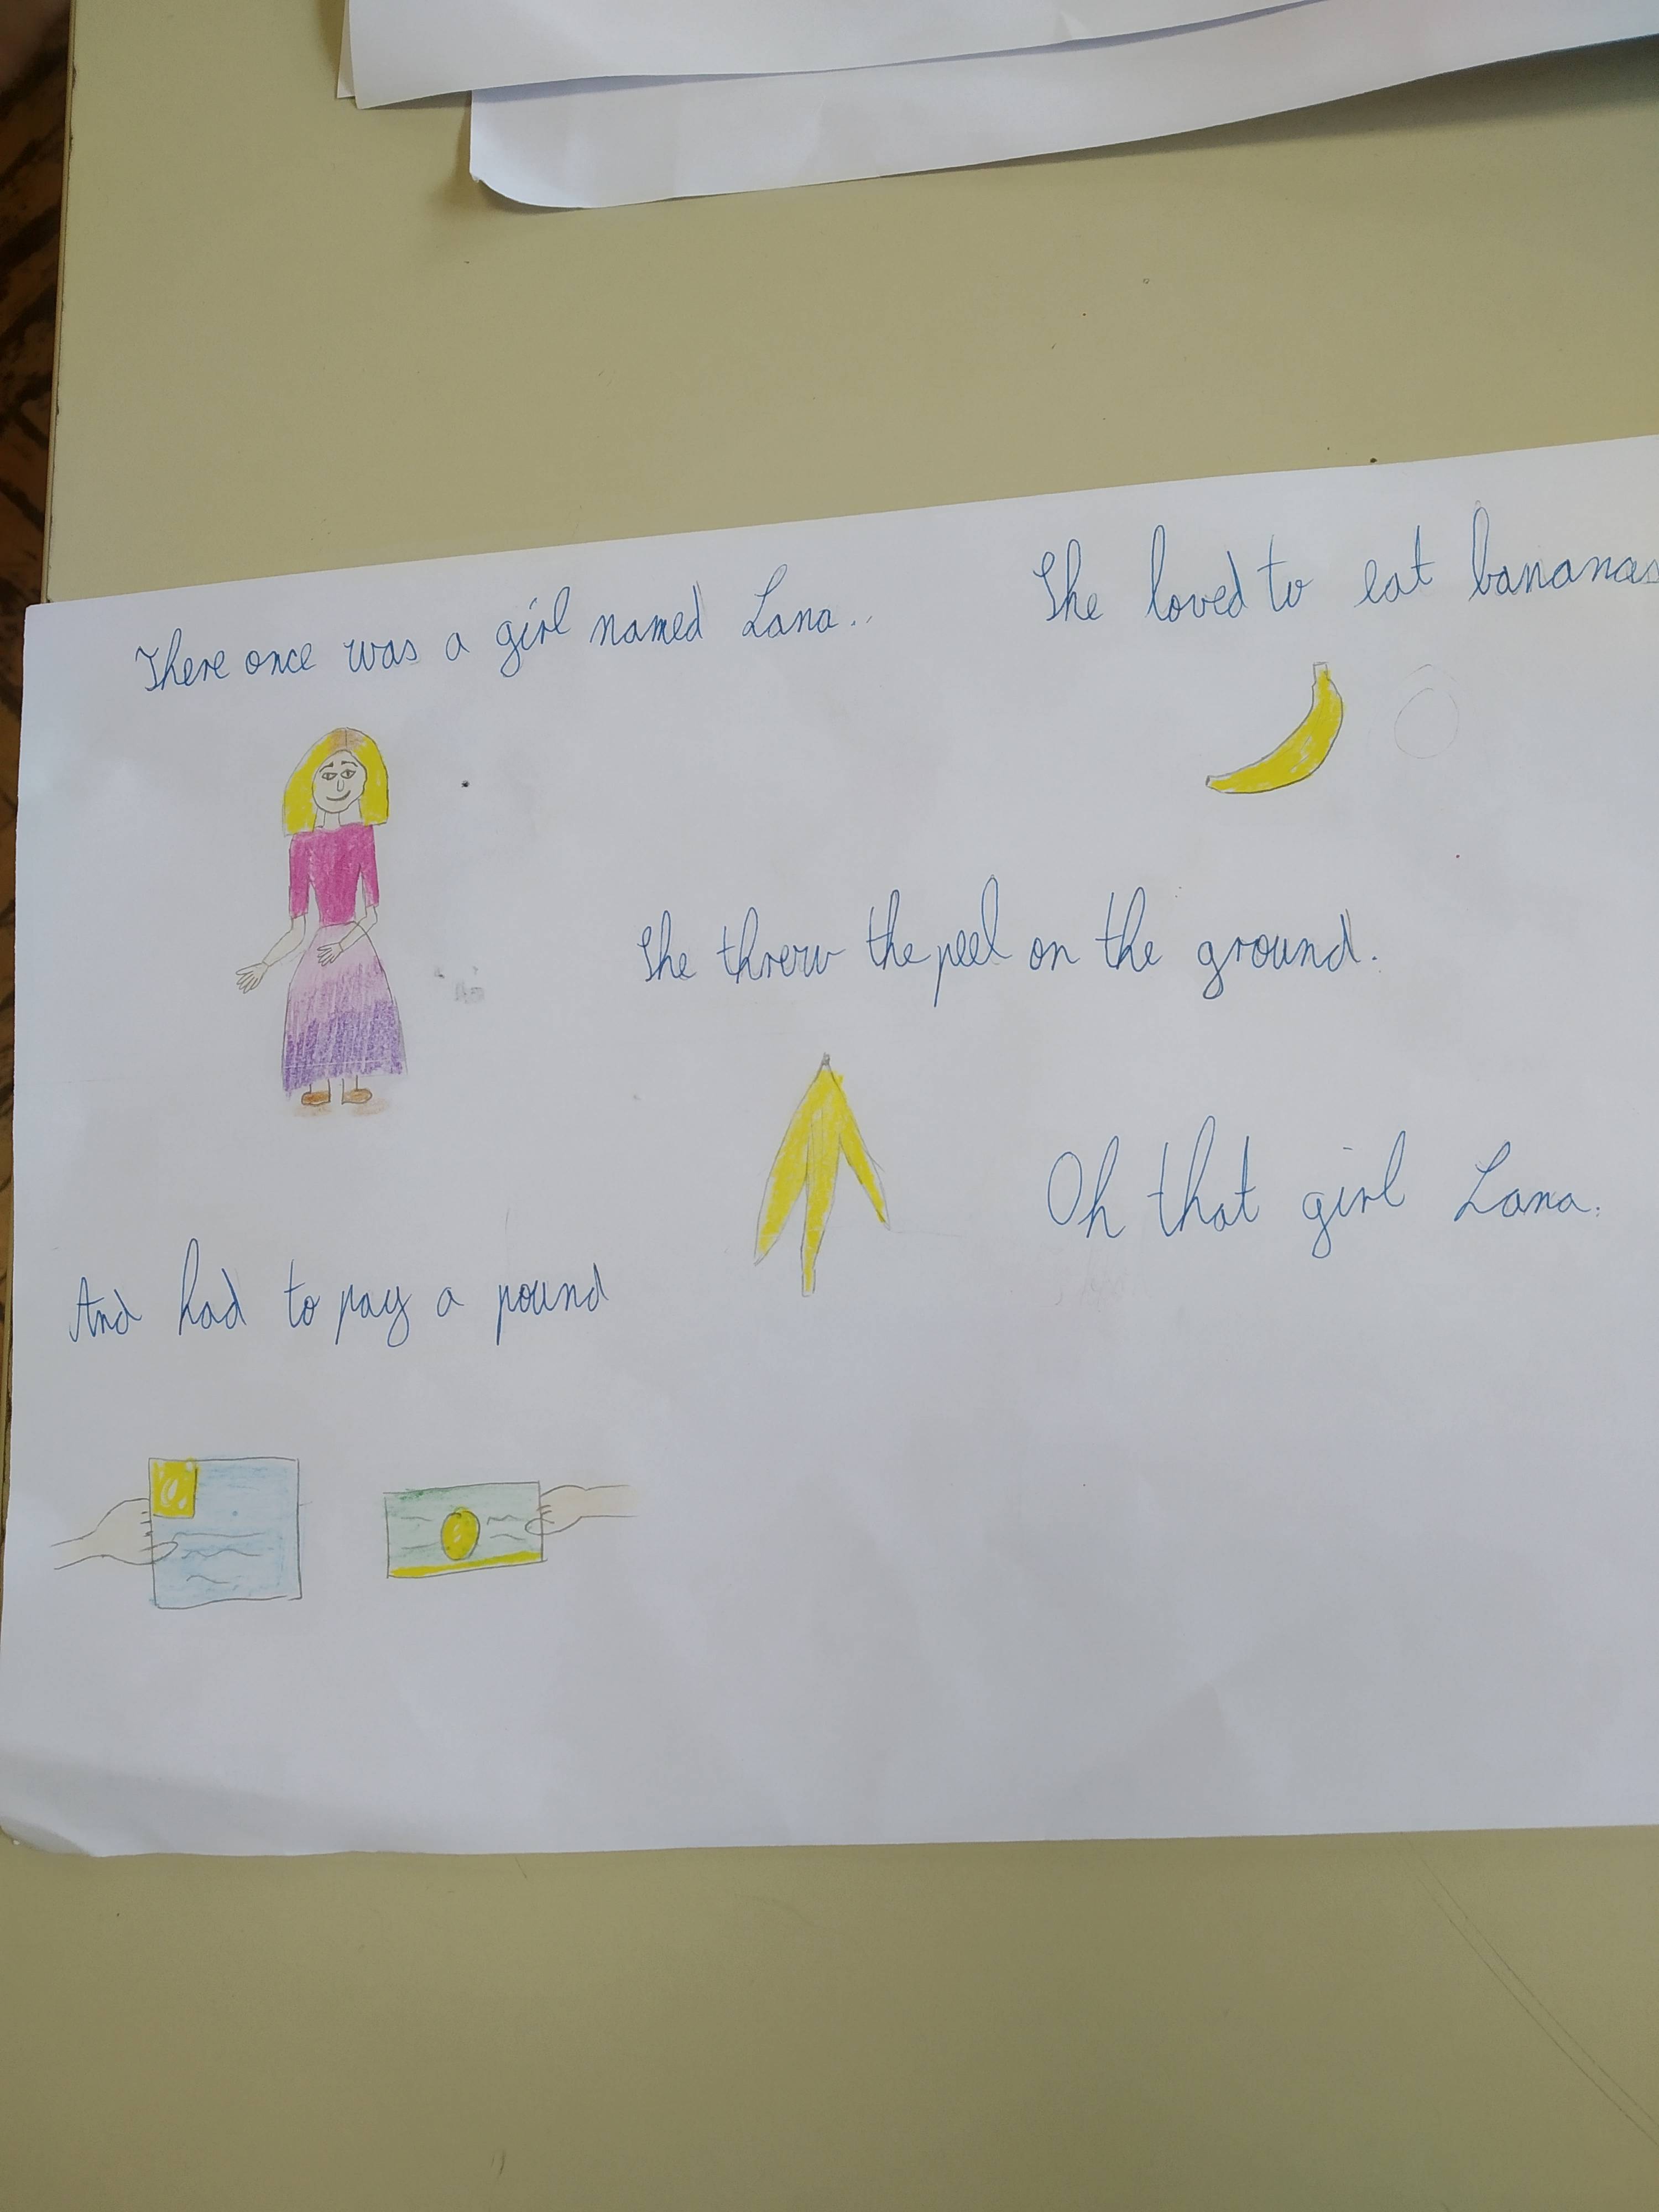 There once was a girl named Lana..
She loved to eat bananas
She threw the peel on the ground.
And had to pay a pound
Oh that girl Lana.